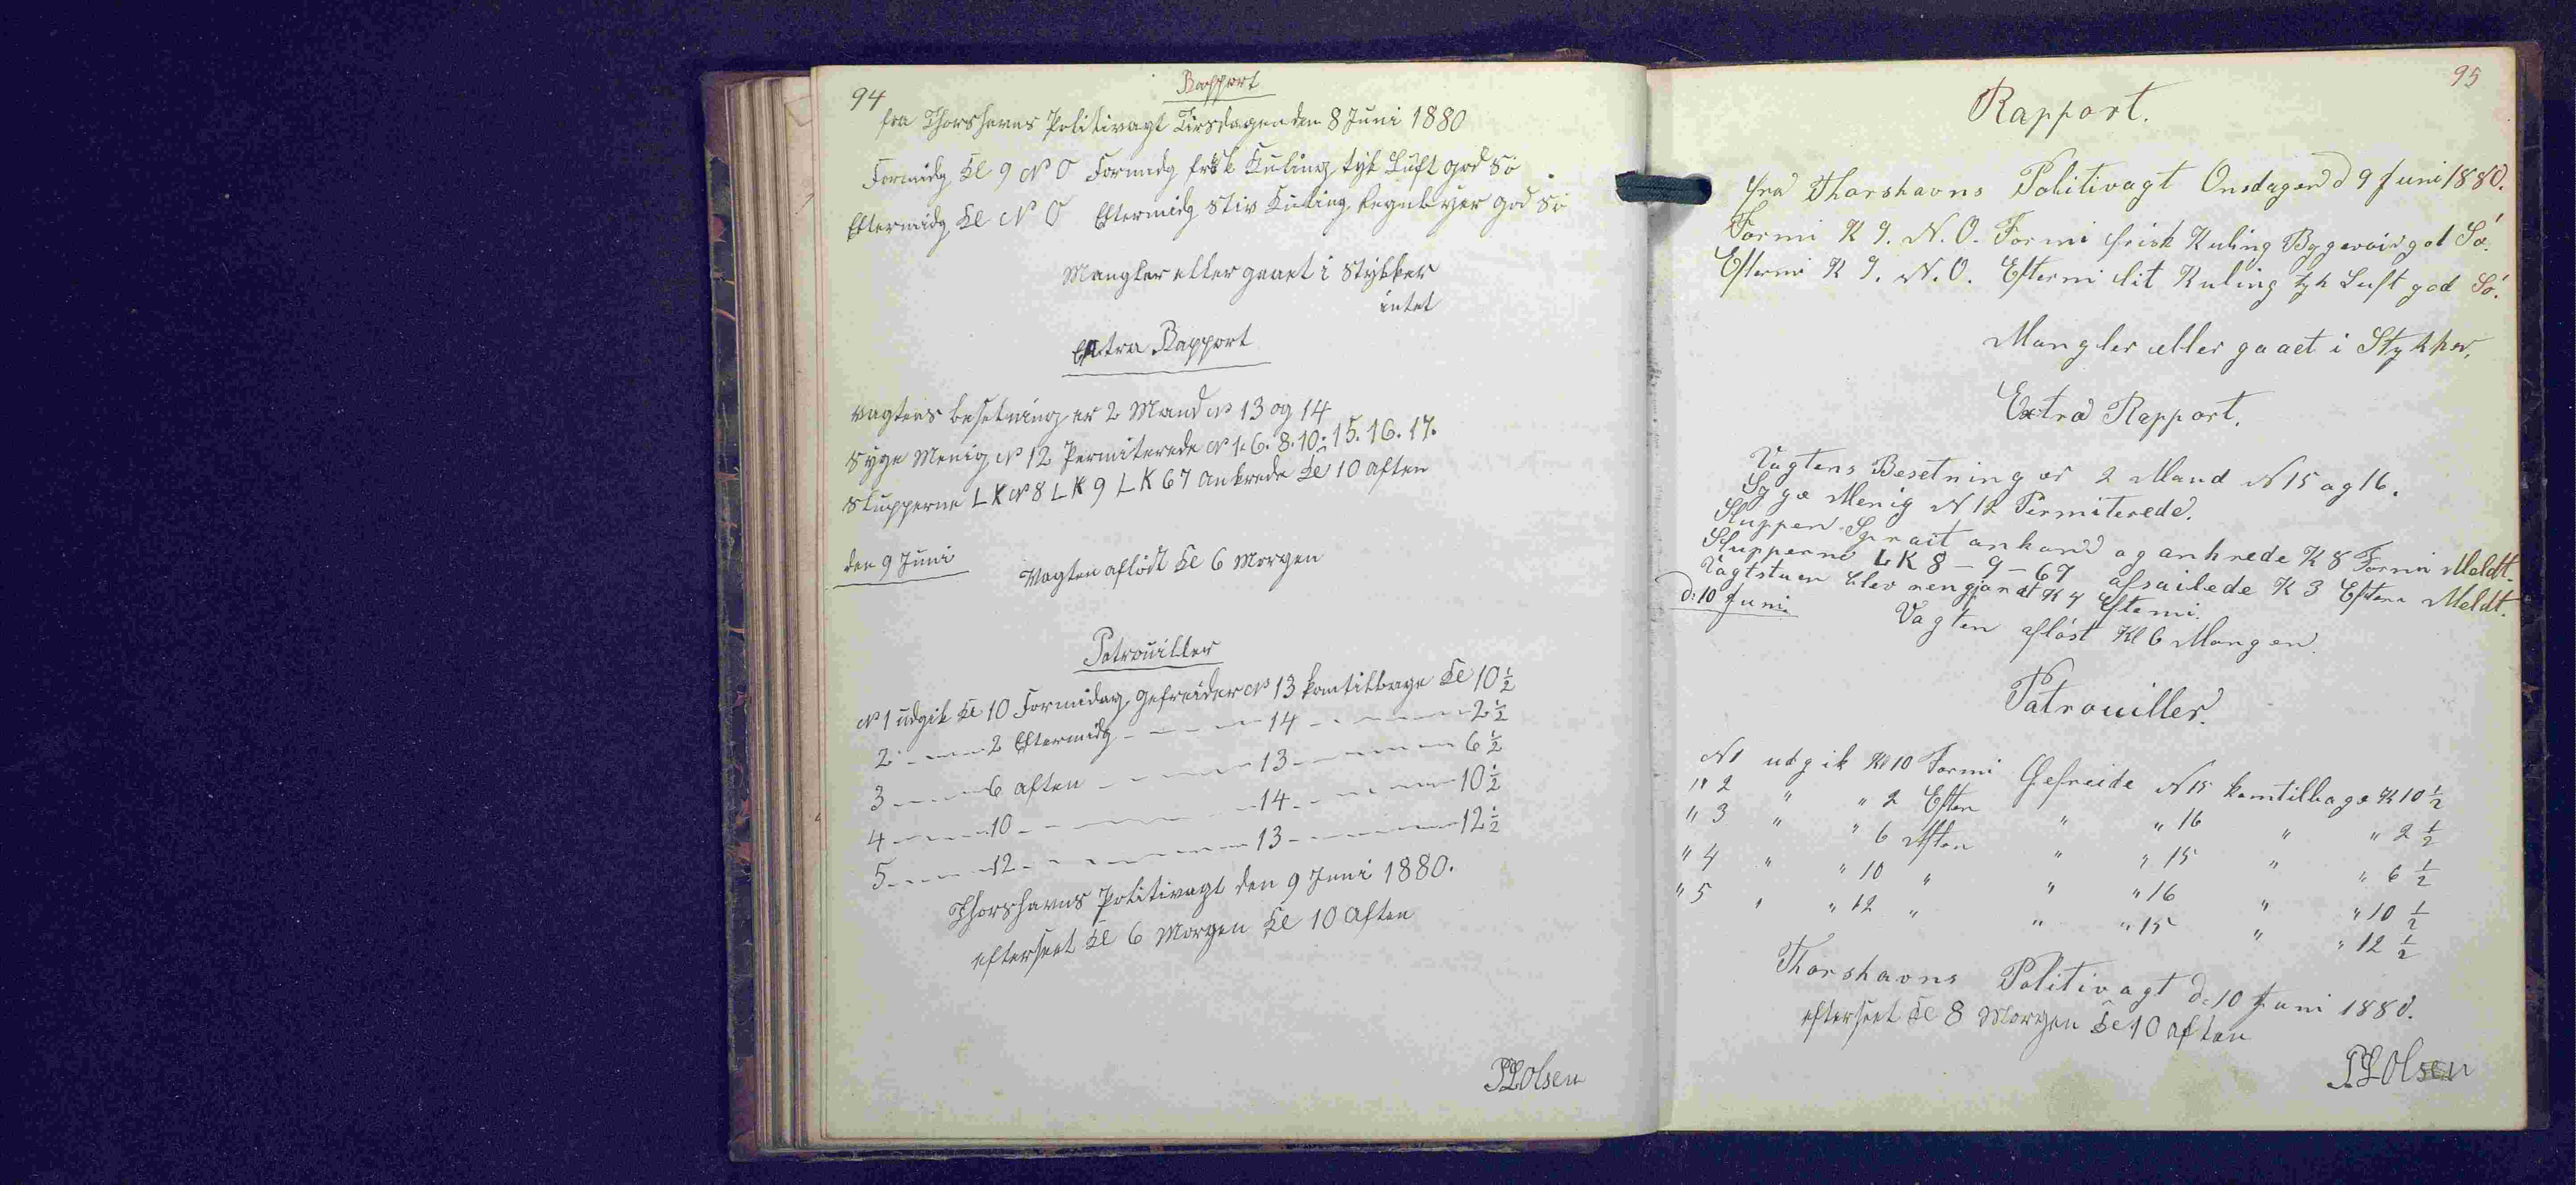 94
Rapport
fra Thorshavns Politivagt Tirsdagen den 8 Juni 1880
Formidg Kl 9 N O Formidg frisk Kuling tyk Luft god Sö
Eftermidg Kl N O Eftermidg Stiv Kuling Regnbyer god Sö
Mangler eller gaaet i Stykker
intet
Extra Rapport
Vagtens besetning er 2 Mand N 13 og 14
Syge Menig N 12 Permiterede N 1. 6. 8. 10. 15. 16. 17.
Slupperne LK N 8 LK 9 LK 67 ankrede Kl 10 aften
den 9 Juni
Vagten aflöst Kl 6 Morgen
Patrouiller
N 1 udgik Kl 10 Formidag Gefreider N 13 komtilbage Kl 10 1/2
2 - - - 2 Eftermidg - - - 14 - - - 2 1/2
3 - - - 6 aften - - - 13 - - - 6 1/2
4 - - - 10 - - - 14 - - - 10 1/2
5 - - - 12 - - - 13 - - - 12 1/2
Thorshavns Politivagt den 9 Juni 1880.
efterseet Kl 6 Morgen Kl 10 Aften
PLOlsen
95
Rapport.
fra Thorshavns Politivagt Onsdagen d 9 Juni 1880.
Formi K 9. N. O. Formi frisk Kuling Bygevoir god Sö.
Eftermi K 9. N. O. Eftermi lit Kuling tyk Luft god Sö.
Mangler eller gaaet i Stykker.
Extra Rapport.
Vagtens Besetning er 2 Mand N 15 og 16.
Syge Menig N 12 Permiterede.
Sluppen ankom og ankrede K 8 Formi Meldt.
Slupperne LK 8 - 9 - 67 afsailede K 3 Efterm Meldt.
Vagtstuen blev rengjordt K 4 Eftemi.
d: 10 Juni
Vagten aflöst Kl 6 Morgen.
Patrouiller.
N1 udgik Kl 10 Formi Gefreide N 15 komtilbage K 10 1/2
" 2 " " 2 Efter " " 16 " " 2 1/2
" 3 " " 6 Aften " " 15 " " 6 1/2
" 4 " " 10 " " " 16 " " 10 1/2
" 5 " " 12 " " " 15 " " 12 1/2
Thorshavns Politivagt d: 10 Juni 1880.
efterseet Kl 8 Morgen Kl 10 aften
PLOlsen